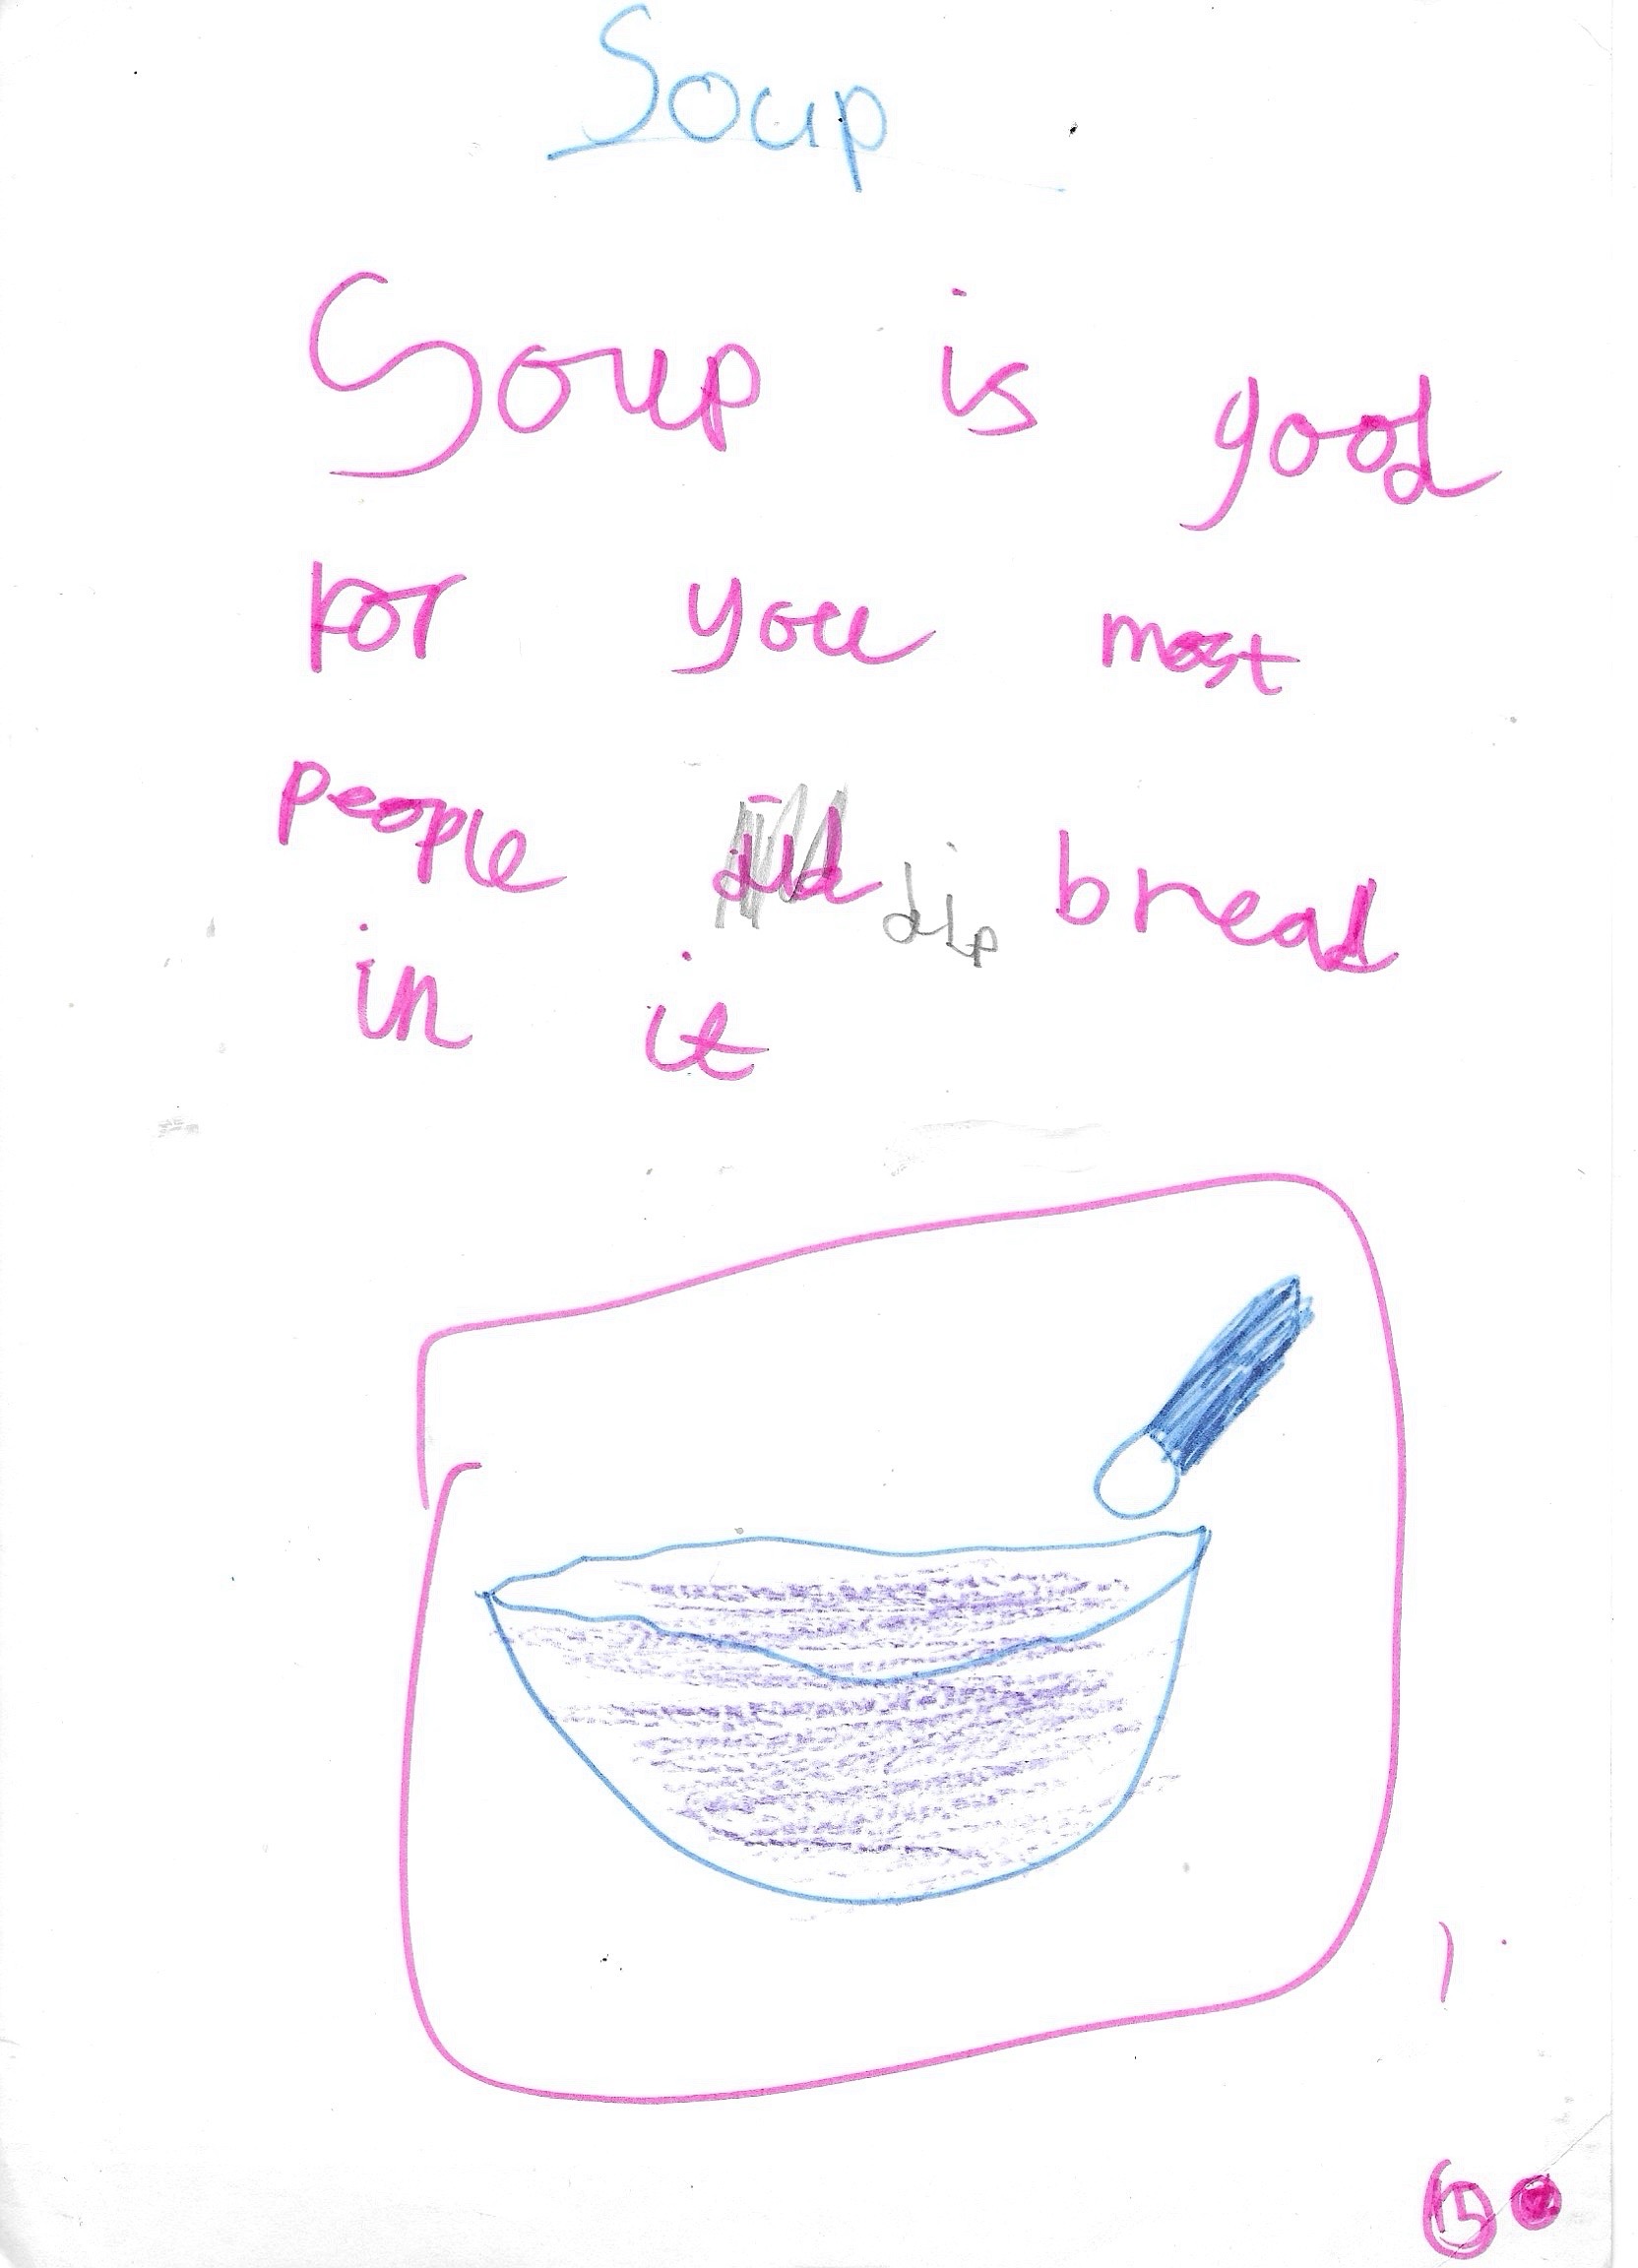 Soup
Soup is good
for you most
people did dip bread
in it